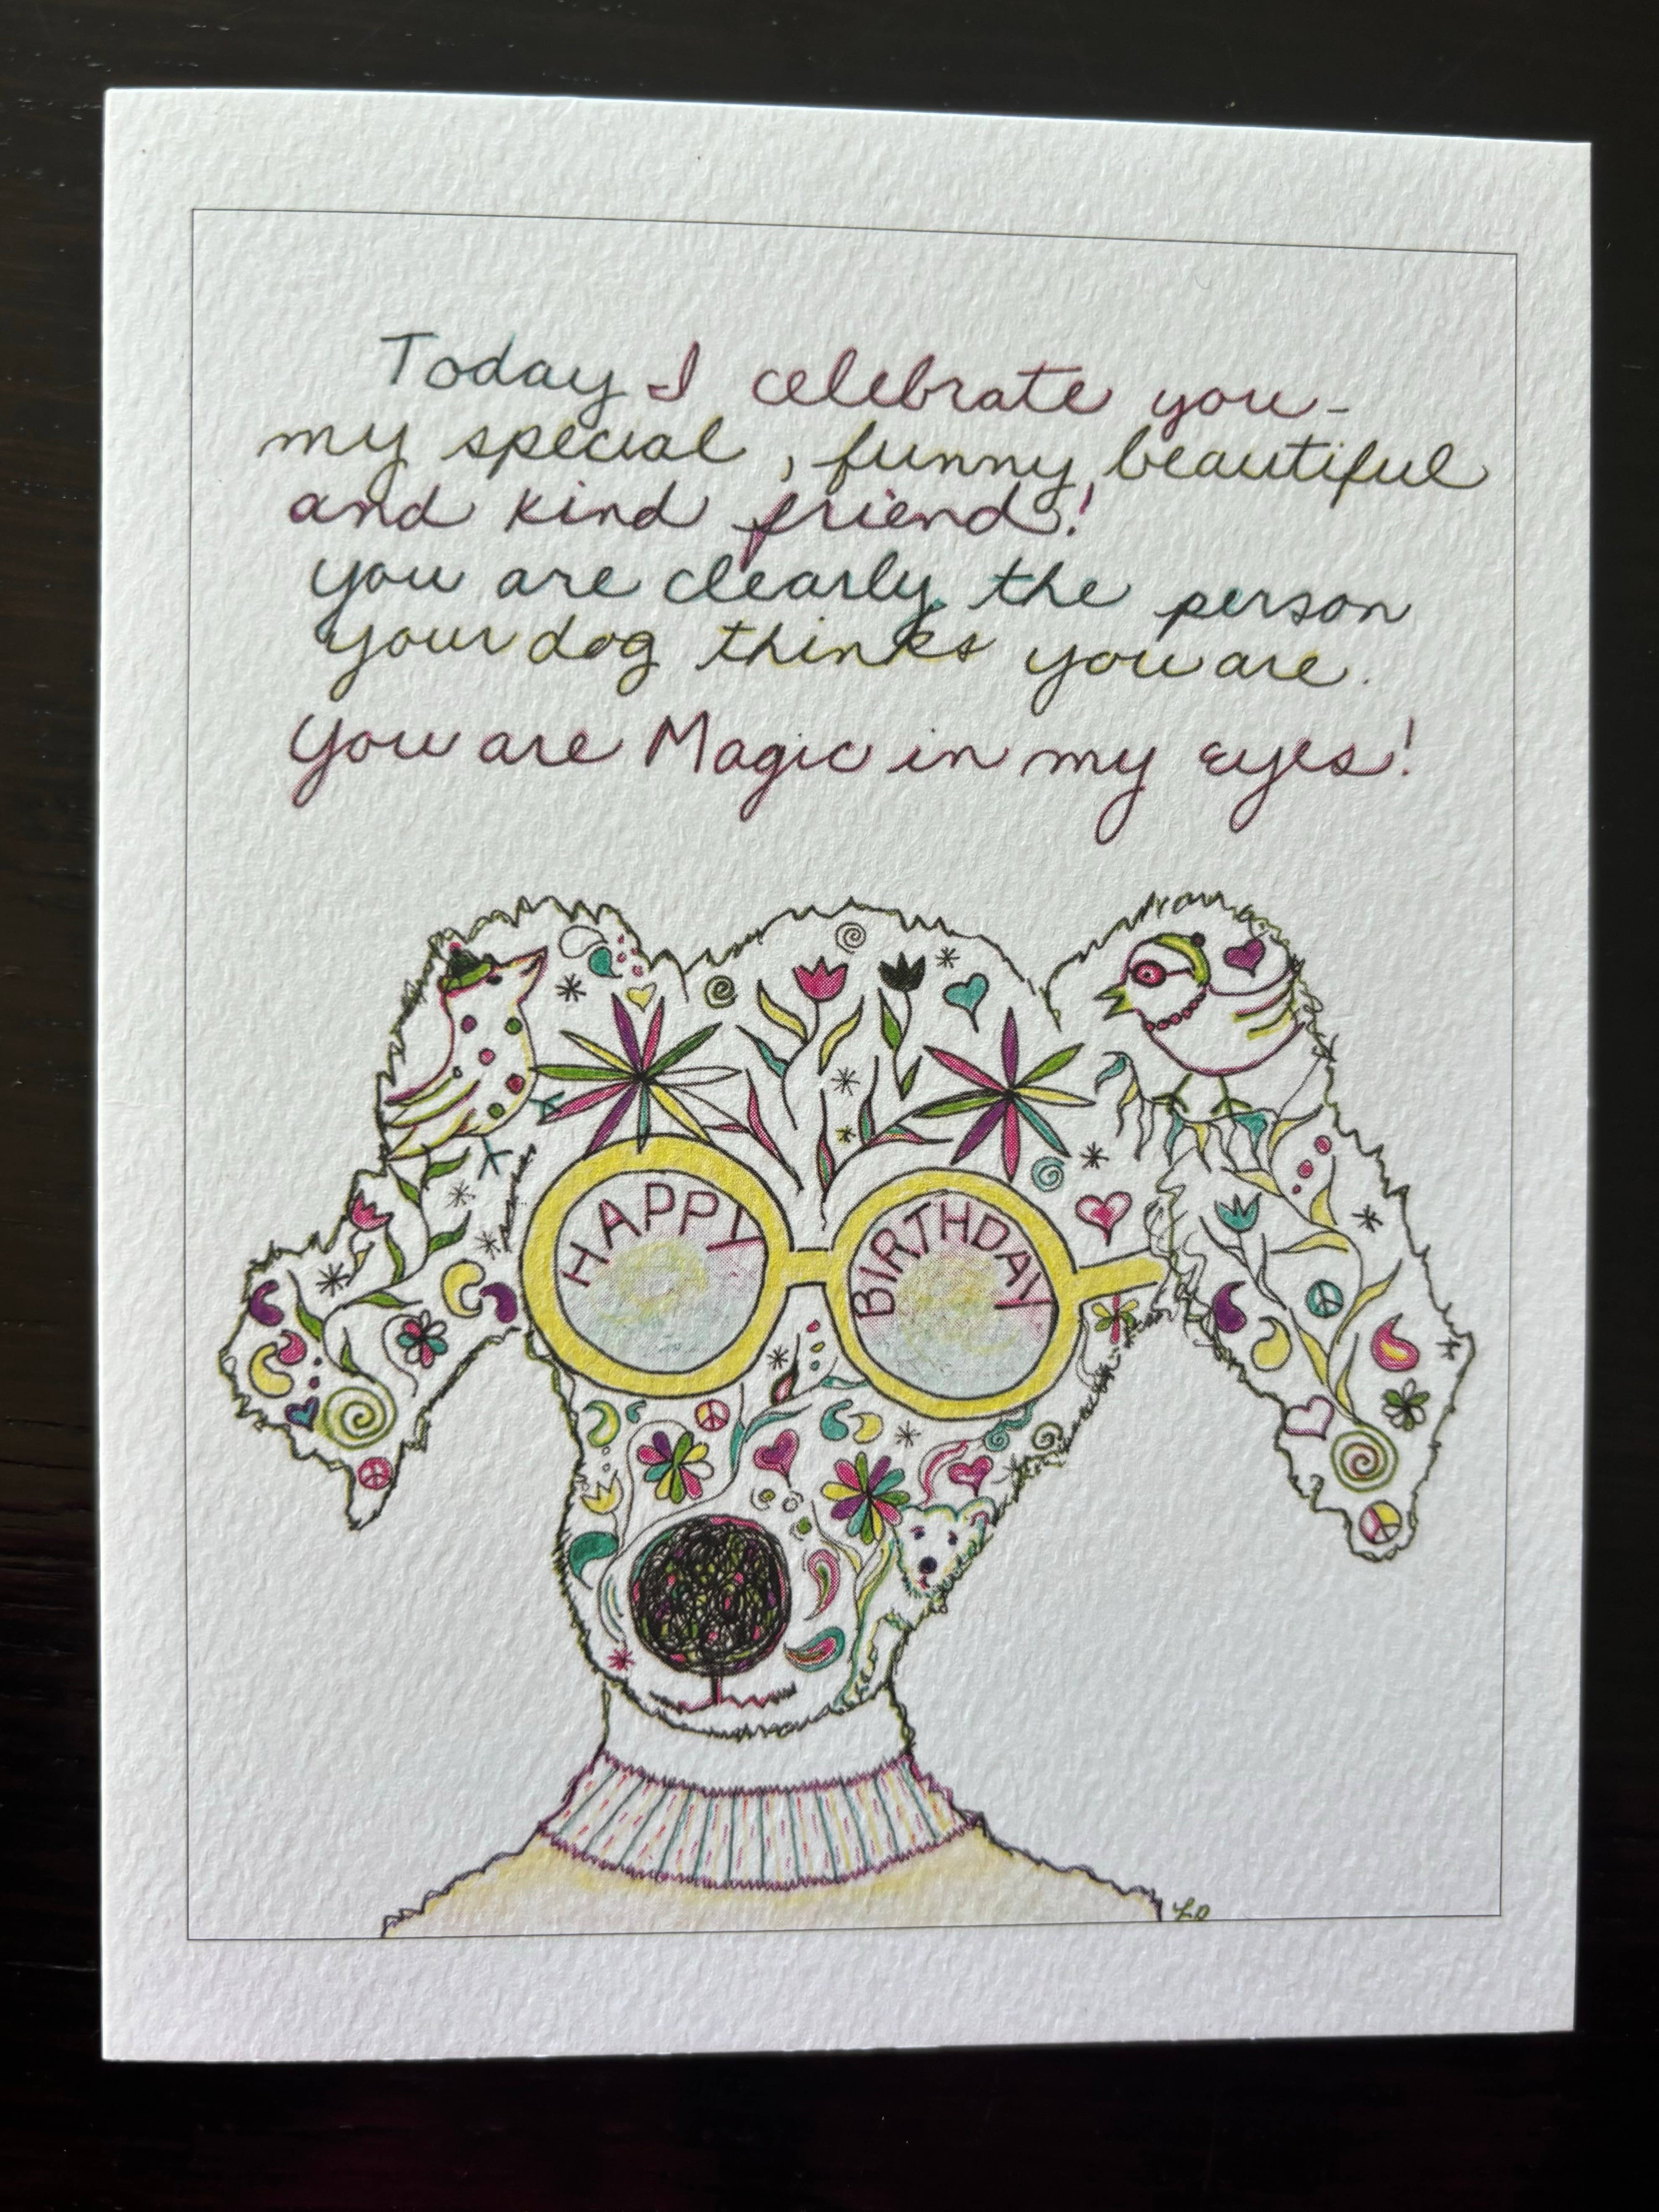 Today I celebrate you-
my special, funny, beautiful
and kind friend!
You are clearly the person
your dog thinks you are.
You are Magic in my eyes!
HAPPY
BIRTHDAY
LO